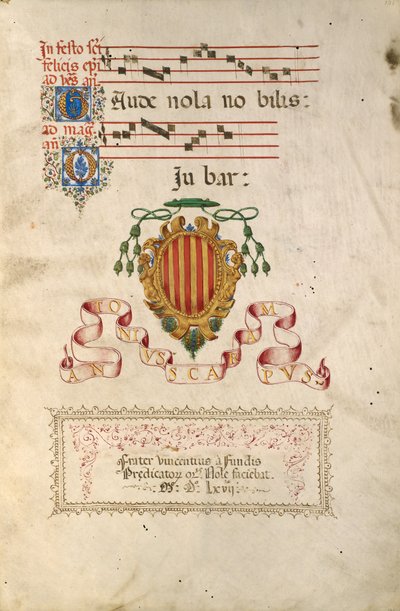 In festo sci
felicis epi
ad ves an
GAude nola no bilis:
ad mag
an
O Ju bar:
ANTONIVS SCARAMPVS
Frater vincentius à Fundis
Predicator ord Nole faciebat.
M: D: Lxvij: